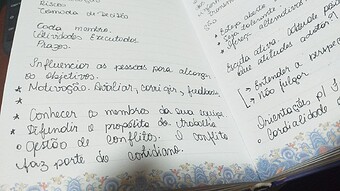 Riscos
Tomada de Decisão
Cada membro.
Atividades Executadas
Prazos.
Influenciar as pessoas para alcançar
os objetivos.
* Motivação. Avaliar, corrigir, feedback
*
* Conhecer os membros da sua equipe
* Defendir o propósito do trabalho
o Gestão de conflitos. O conflito
faz parte do cotidiano.
Esteja aberto
Seja tolerante
ofereça alternativas
Escuta ativa
suas atitudes
Entender a
não julgar
Orientações p/
o Cordialidade